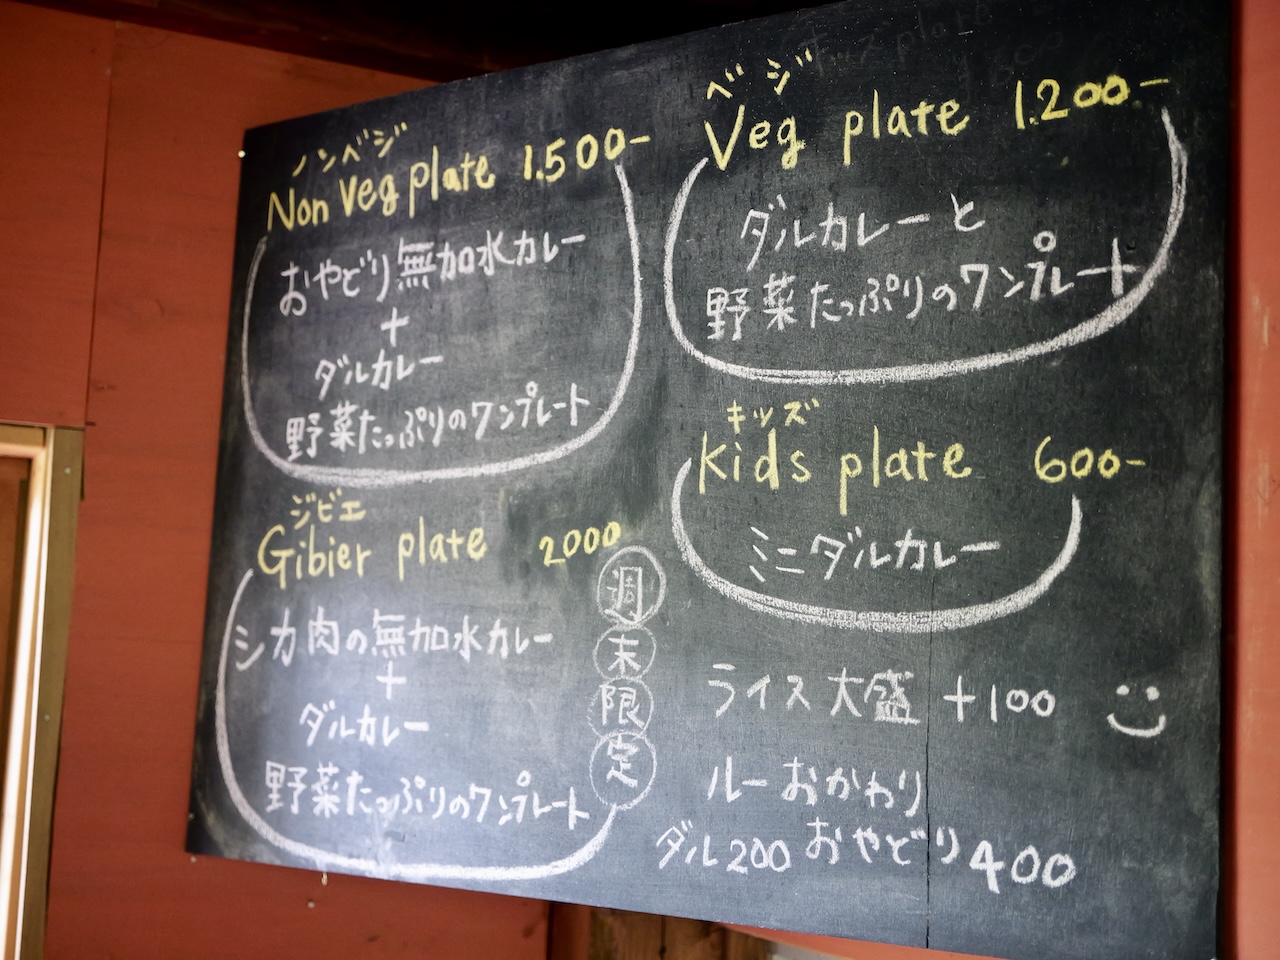 ノンベジ
Non Veg plate 1.500-
おやどり無加水カレー
+
ダルカレー
野菜たっぷりのワンプレート
ベジ
Veg plate 1.200-
ダルカレーと
野菜たっぷりのワンプレート
ジビエ
Gibier plate 2000
週末限定
シカ肉の無加水カレー
+
ダルカレー
野菜たっぷりのワンプレート
キッズ
Kids plate 600-
ミニダルカレー
ライス大盛 +100
ルーおかわり
ダル200 おやどり400